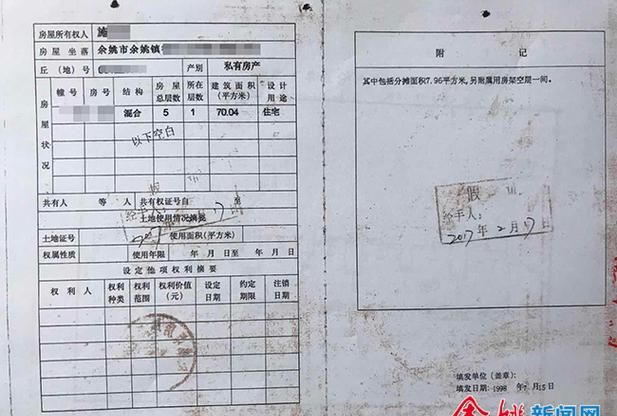 房屋所有权人 施
房屋坐落 余姚市余姚镇
丘(地)号 产别 私有房产
房屋状况
幢号 房号 结构 房屋总层数 所在层数 建筑面积(平方米) 设计用途
混合 5 1 70.04 住宅
以下空白
共有人 等 人 共有权证号自 至
土地使用情况摘要
土地证号 使用面积(平方米)
权属性质 使用年限 年 月 日至 年 月 日
设定他项权利摘要
权利人 权利种类 权利范围 权利价值(元) 设定日期 约定期限 注销日期
假
经手人:
2017
17
附 记
其中包括分摊面积7.96平方米,另附属用房架空层一间。
假
经手人:
2017年2月17日
填发单位(盖章):
填发日期:1998 年7月15日
余姚新闻网